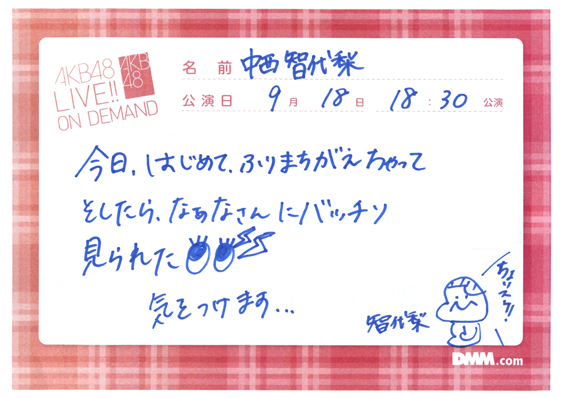 AKB48
LIVE!!
ON DEMAND
AKB
48
名前 中西智代梨
公演日 9月 18日 18:30 公演
今日、はじめて、ふりまちがえちゃって
そしたら、なぁなさんにバッチリ
見られた
気をつけます...
智代梨
DMM.com